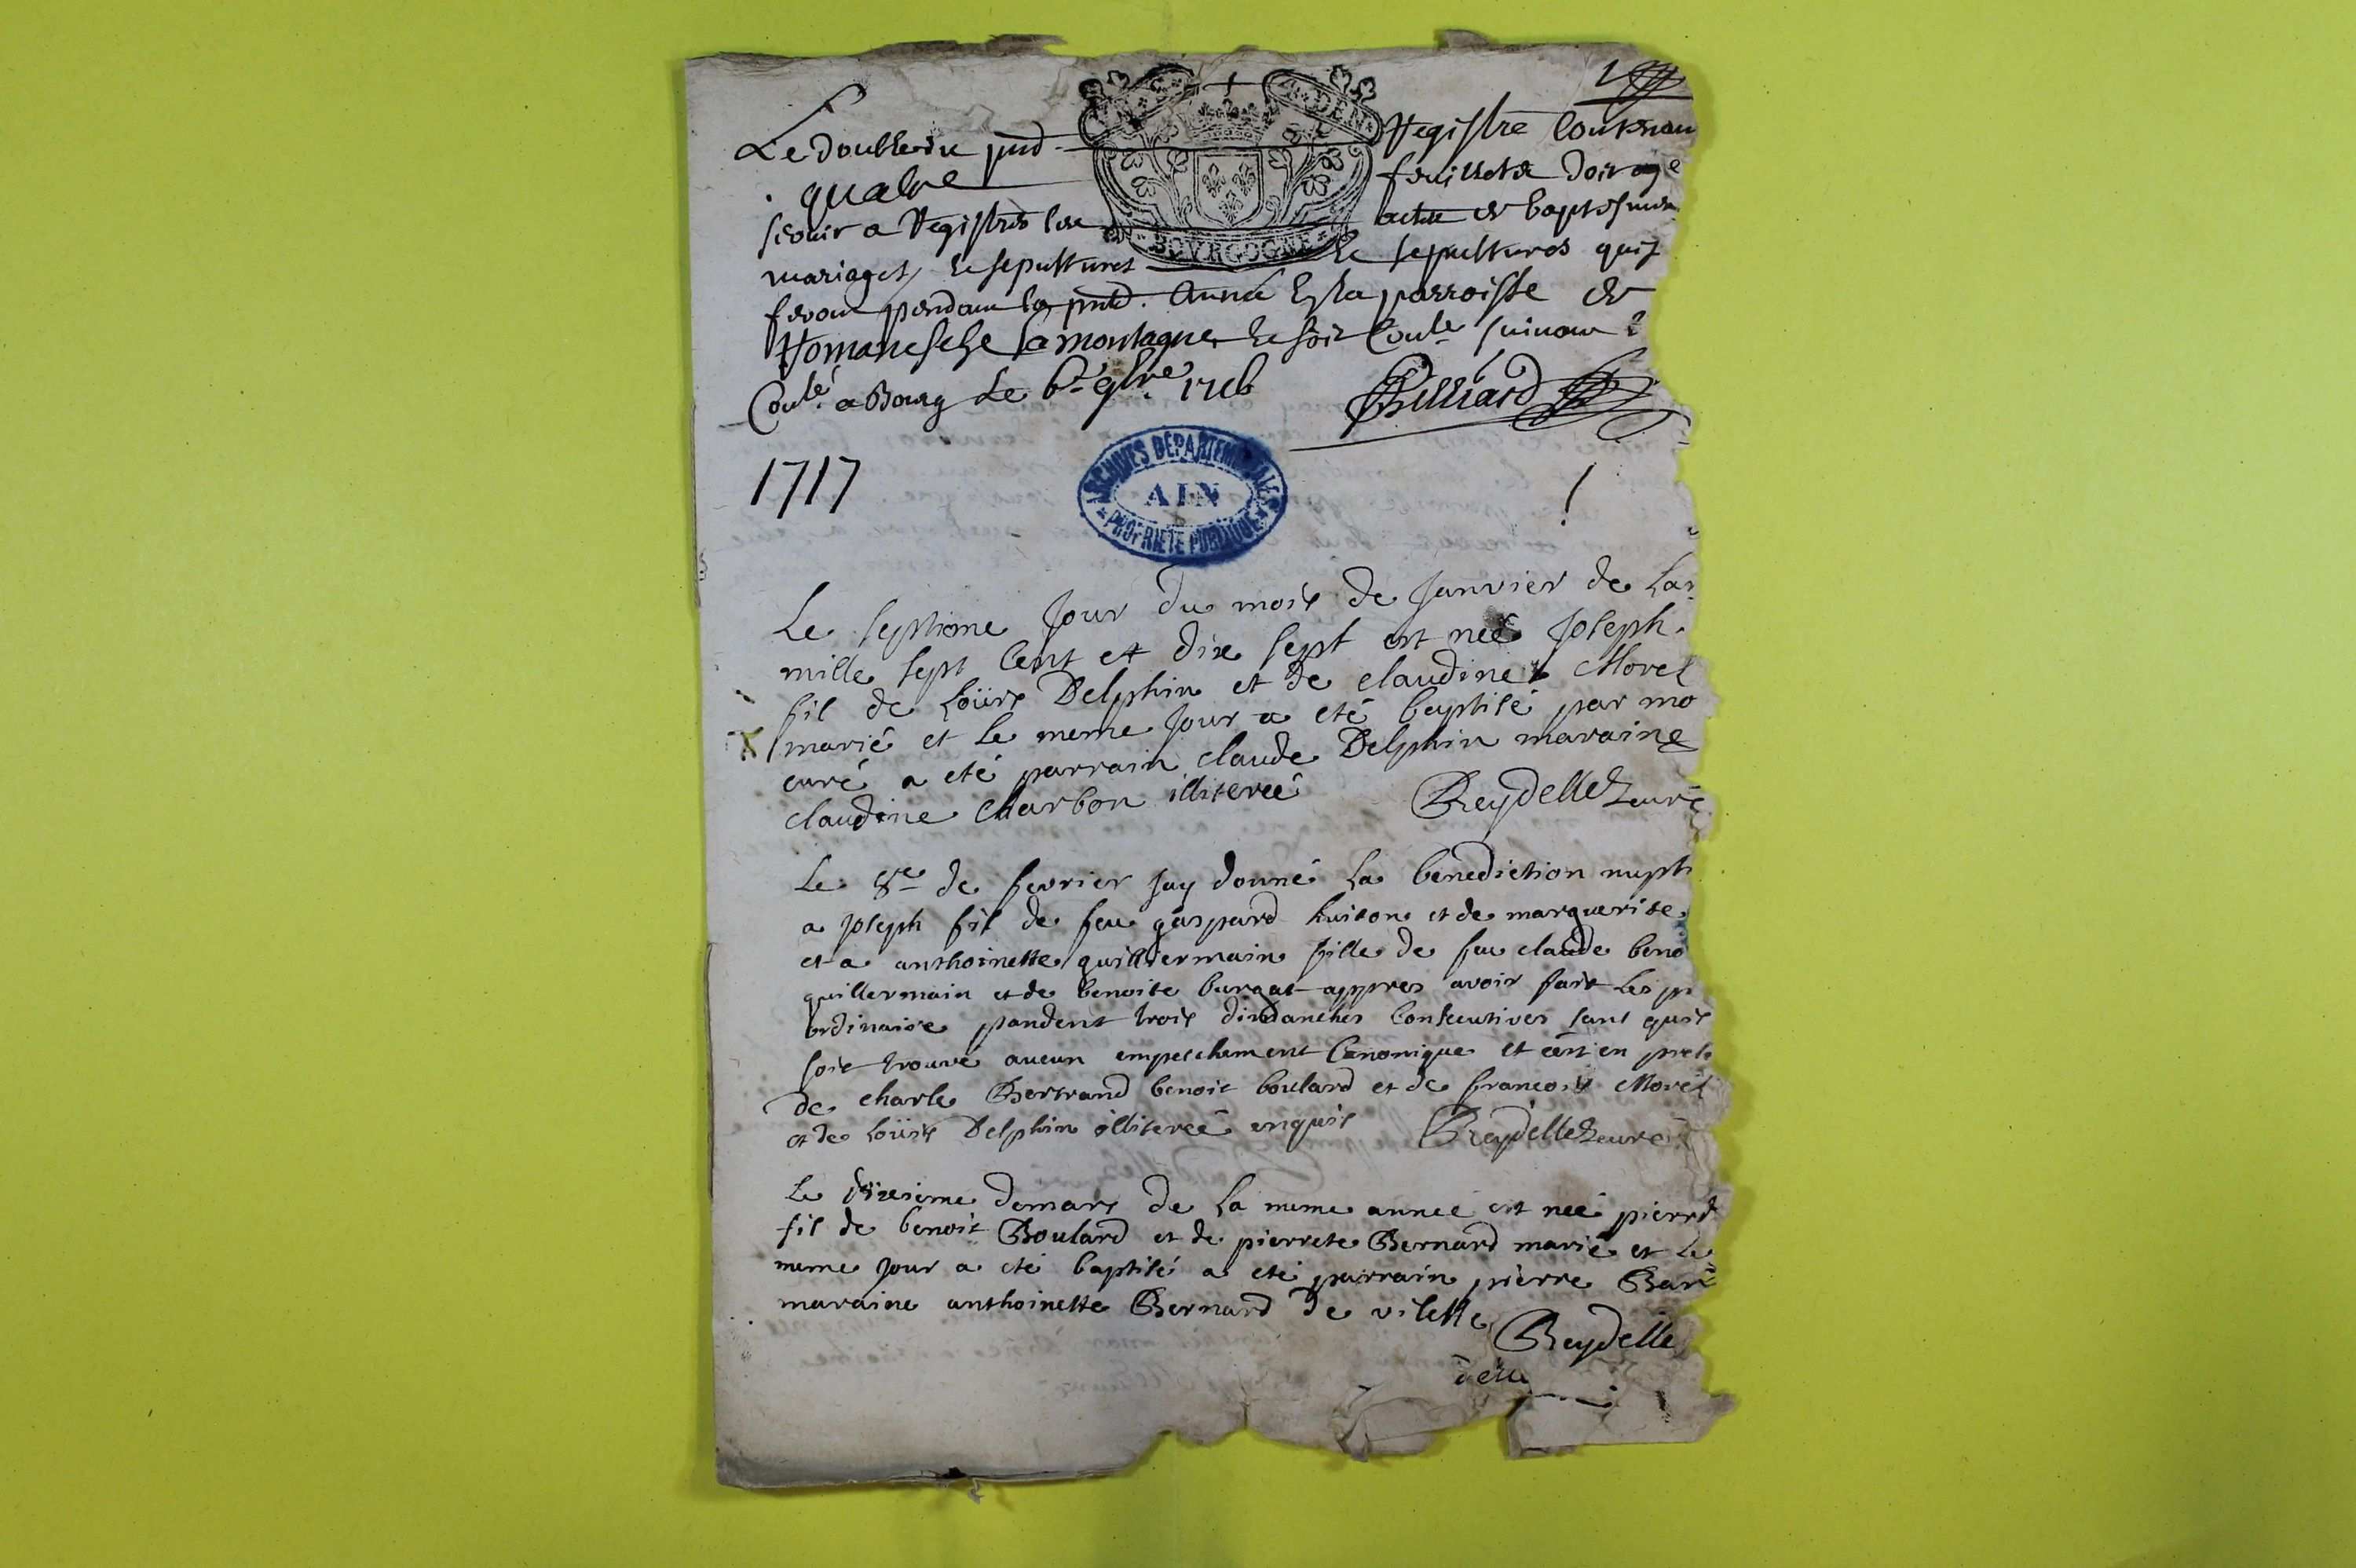 Le double du pnt Registre contenan
quatre feuillets doit
servir a Registrer les actes de baptesmes
mariages, et sepultures et sepultures qui se
feront pendant la pnte. Année En la parroisse de
Romanesche la montagne et soit Cotté suivant
Cotté a Bourg Le 6e 9bre 1716 Billiard
1717 1
ARCHIVES DÉPARTEMENTALES
AIN
PROPRIÉTÉ PUBLIQUE
DEN
BOVRGOGNE
Le septieme Jour du mois de Janvier de Lan
mille sept Cent et dix sept est neé Joseph
fil de Loüis Delphin et de claudine Morel
marié et Le meme Jour a eté baptisé par mo
curé a eté parrain claude Delphin maraine
claudine Charbon illitereé Reydellet curé
Le 8e de fevrier Jay donné La benediction nupti
a Joseph fil de feu gaspard huison et de marguerite
et a anthoinette quilliermain fille de feu claude beno
quillermain et de benoite burgat appres avoir fait Les p
ordinaire pandent trois dimanches Consecutives sans quil
soit trouvé aucun empeschement Canonique et cest en prese
de charle Bertrand benoit boulard et de francois Morel
et de Loüis Delphin illitereé enquis Reydellet curé
Le dixieme demars de La meme anneé est neé pierre
fil de benoit Boulard et de pierrete Bernard marié et Le
meme Jour a eté baptisé a eté parrain pierre Bar
maraine anthoinette Bernard de vilette
Reydelle